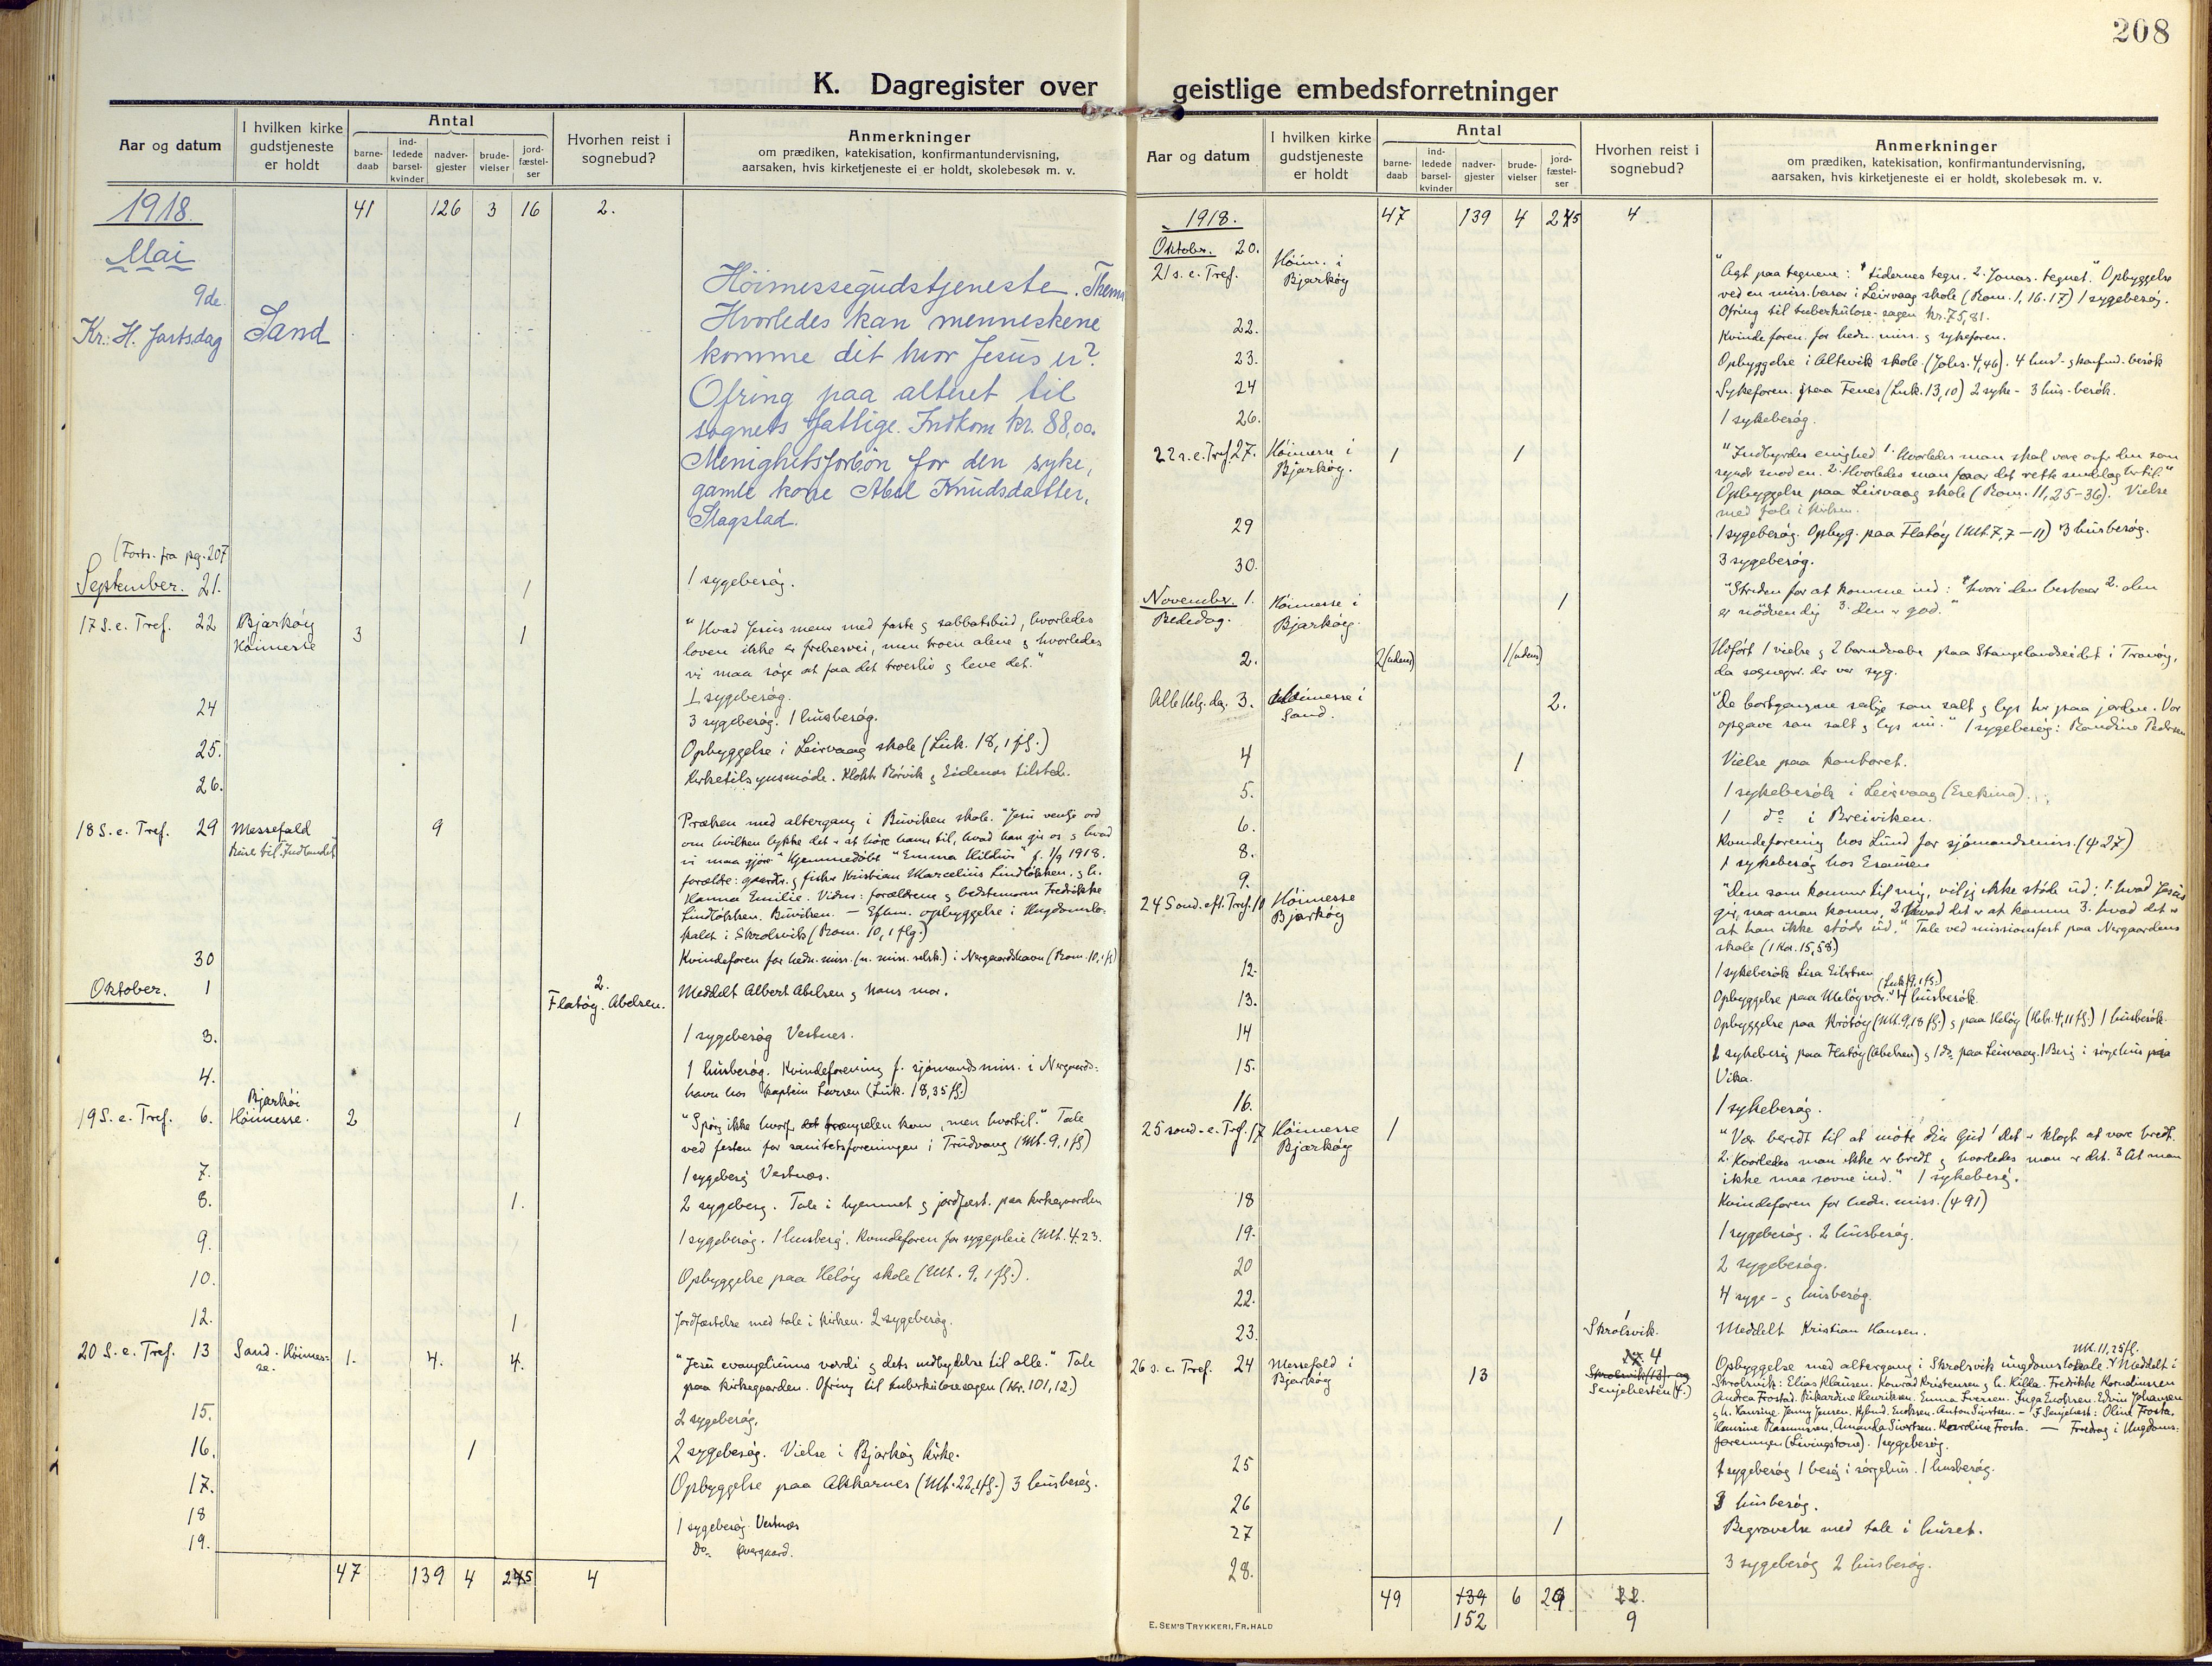 208
K. Dagregister over
geistlige embedsforretninger
Aar og datum
I hvilken kirke
gudstjeneste
er holdt
Antal
barne-
daab
ind-
ledede
barsel-
kvinder
nadver-
gjester
brude-
vielser
jord-
fæstel-
ser
Hvorhen reist i
sognebud?
Anmerkninger
om prædiken, katekisation, konfirmantundervisning,
aarsaken, hvis kirketjeneste ei er holdt, skolebesøk m. v.
1918. 41 126 3 16 2.
Mai
9de.
Kr. H. fartsdag Sand
Höimessegudstjeneste. Thema
Hvorledes kan menneskene
komme dit hvor Jesus er?
Ofring paa alteret til
sognets fattige. Indkom kr. 88,00.
Menighetsforbön for den syke,
gamle kone Abel Knudsdatter,
Slagstad.
(Forts. fra pag. 207
September. 21. 1 1 sygebesøg.
17 S. e. Tref. 22 Bjarkøy Höimesse 3 1
"Hvad Jesus mener med faste & sabbatsbud, hvorledes
loven ikke er frelsesvei, men troen alene & hvorledes
vi maa søge at faa det troesliv & leve det."
1 sygebesøg.
24 3 sygebesøg. 1 husbesøg.
25. Opbyggelse i Leirvaag skole (Luk. 18, 1 flg.)
26. Kirketilsynsmøde. Klokk. Rørvik & Eidenær tilstede.
18 S. e. Tref. 29 Messefald 9
Reise til "Indlandet"
Præken med altergang i Buviken skole. "Jesu venlige ord
om hvilken lykke det er at høre ham til, hvad han gir os & hvad
vi maa gjøre." Hjemmedøbt "Emma Hildur" f. 1/9 1918.
forældre: gaardbr. & fisker Kristian Marcelius Lindløkken & h.
Hanna Emilie. Vidner: forældrene & bedstemoren Fredrikke
Lindløkken. Buviken. — Efterm. opbyggelse i Ungdomslo-
kalet i Skrolsvik (Rom. 10, 1 flg.)
30 Kvindeforen for hedn. miss. (n. miss. selsk.) i Nergaardshavn (Rom. 10, 1 fl)
Oktober. 1 2. Flatøy. Abelsen. Meddelt Albert Abelsen & hans mor.
3. 1 sygebesøg Vestnes.
4. 1 husbesøg. Kvindeforening f. sjømandsmiss. i Nergaards-
havn hos kaptein Larsen (Luk. 18, 35 fl.)
19 S. e. Tref. 6. Bjarkøi Höimesse. 2 1
"Spørg ikke hvorf. trængselen kom, men hvortil." Tale
ved festen for sanitetsforeningen i Trudvang (Mt. 9, 1 fl)
7. 1 sygebesøg Vestnæs.
8. 1. 2 sygebesøg. Tale i hjemmet & jordfæst. paa kirkegaarden
9. 1 sygebesøg. 1 husbesøg. Kvindeforen for sygepleie (Mt. 4. 23.
10. Opbyggelse paa Heløy skole (Mt. 9, 1 fl.).
12. 1 Jordfæstelse med tale i kirken. 2 sygebesøg.
20 S. e. Tref. 13 Sand. Höimes-
se. 1. 4. 4.
"Jesu evangeliums værdi & dets indbydelse til alle." Tale
paa kirkegaarden. Ofring til tuberkulosesagen (kr. 101,12.)
15. 2 sygebesøg.
16. 1 2 sygebesøg. Vielse i Bjarkøy kirke.
17. Opbyggelse paa Akkarnes (Mt. 22, 1 fl.) 3 husbesøg.
18 1 sygebesøg Vestnæs
19. Do Øvergaard.
47 139 4 25 4
Aar og datum
I hvilken kirke
gudstjeneste
er holdt
Antal
barne-
daab
ind-
ledede
barsel-
kvinder
nadver-
gjester
brude-
vielser
jord-
fæstel-
ser
Hvorhen reist i
sognebud?
Anmerkninger
om prædiken, katekisation, konfirmantundervisning,
aarsaken, hvis kirketjeneste ei er holdt, skolebesøk m. v.
1918. 47 139 4 25 4
Oktober. 20.
21 s. e. Tref. Höim. i
Bjarkøy
"Agt paa tegnene: 1 tidernes tegn. 2. Jonas. tegnet." Opbyggelse
ved en miss. basar i Leirvaag skole (Rom. 1, 16. 17) 1 sygebesøg.
Ofring til tuberkulose-sagen kr. 75,81.
22. Kvindeforen. for hedn. miss. & sykeforen.
23. Opbyggelse i Altevik skole. (Johs. 4, 46). 4 hus- & konfirmd. besøk
24 Sykeforen. paa Fenes (Luk. 13, 10) 2 syke- 3 hus-besøk.
26. 1 sykebesøg.
22 s. e. Tref. 27. Höimesse i
Bjarkøy. 1 1
"Indbyrdes enighed 1. Hvorledes man skal være overfor den som
synder mod en. 2. Hvorledes man faar det rette sindelag hertil."
Opbyggelse paa Leirvaag skole (Rom. 11, 25-36). Vielse
med tale i kirken.
29 1 sygebesøg. Opbyg. paa Flatøy (Mt. 7, 7 — 11) 3 husbesøg.
30. 3 sygebesøg.
November. 1. Höimesse i
Bededag. Bjarkøy. 1
"Striden for at komme ind: 1 hvori den bestaar 2. den
er nødvendig 3. den er god."
2. 2 (udens) 1 (udens)
Utført 1 vielse & 2 barnedaabe paa Stangelandseidet i Tranøy,
da sognepr. der var syg.
Alle Helg. dag 3. Höimesse i
Sand. 2.
"De bortgangne salige som salt & lys her paa jorden. Vor
opgave som salt & lys nu." 1 sygebesøg: Randine Pedersen
4 1 Vielse paa kontoret.
5. 1 sykebesøk i Leirvaag (Esekina)
6. 1 do i Breiviken.
8. Kvindeforening hos Lund for sjømandsmiss. (427)
9. 1 sykebesøg hos Esaisen
24 Sønd. eft. Tref. 10 Höimesse
Bjarkøy
"Den som kommer til mig, vil jeg ikke støde ud: 1. hvad Jesus
gir, naar man kommer, 2. Hvad det er at komme 3. hvad det er
at han ikke støder ud." Tale ved missionsfest paa Nergaardens
skole (1 Kor. 15, 58)
12. 1 sykebesøk Lisa Eilertsen
13. Opbyggelse paa Meløyvær. 4 husbesøk. (Luk 19, 1 fl.)
14 Opbyggelse paa Krøtøy (Mt. 9, 18 fl.) & paa Heløy (Hebr. 4, 11 fl.) 1 husbesøk.
15. 1 sykebesøg paa Flatøy (Abelsen) & 1 do paa Leirvaag. 1 Besøg i sørgehus paa
Vika.
16. 1 sykebesøg.
25 sønd. e. Tref. 17 Höimesse
Bjarkøy 1
"Vær beredt til at møte din Gud 1 det er klogt at være beredt.
2. Hvorledes man ikke er beredt & hvorledes man er det. 3 At man
ikke maa sovne ind." 1 sykebesøg.
18 Kvindeforen for hedn. miss. (491)
19. 1 sygebesøg. 2 husbesøg.
20 2 sygebesøg.
22. 4 syge- & husbesøg.
23. 1 Skrolsvik. Meddelt Kristian Hansen.
26 s. e. Tref. 24 Messefald i
Bjarkøy 13 4
Skrolsvik (13) og
Senjehesten (4.)
Mt. 11, 25 fl.
Opbyggelse med altergang i Skrolsvik ungdomslokale. Meddelt i
Skrolsvik: Elias Klausen. Konrad Kristensen & h. Hilda. Fredrikke Korneliussen
Andrea Frostad. Rikardine Henriksen. Emma Iversen. Inga Enoksen. Edvin Johansen
& h. Hansine. Jenny Jensen. Enoksen. Anton Sivertsen. — I Senjehest: Oline Frosta.
Hansine Rasmussen. Amanda Sivertsen. Karoline Frosta. — Foredrag i Ungdoms-
foreningen (Livingstone). 1 sygebesøg.
25 1 sygebesøg 1 besøg i sørgehus. 1 husbesøg.
26 3 husbesøg.
27 1 Begravelse med tale i huset.
28. 3 sygebesøg 2 husbesøg.
49 139 6 29 22.
152 9
E. SEM'S TRYKKERI, FR.HALD